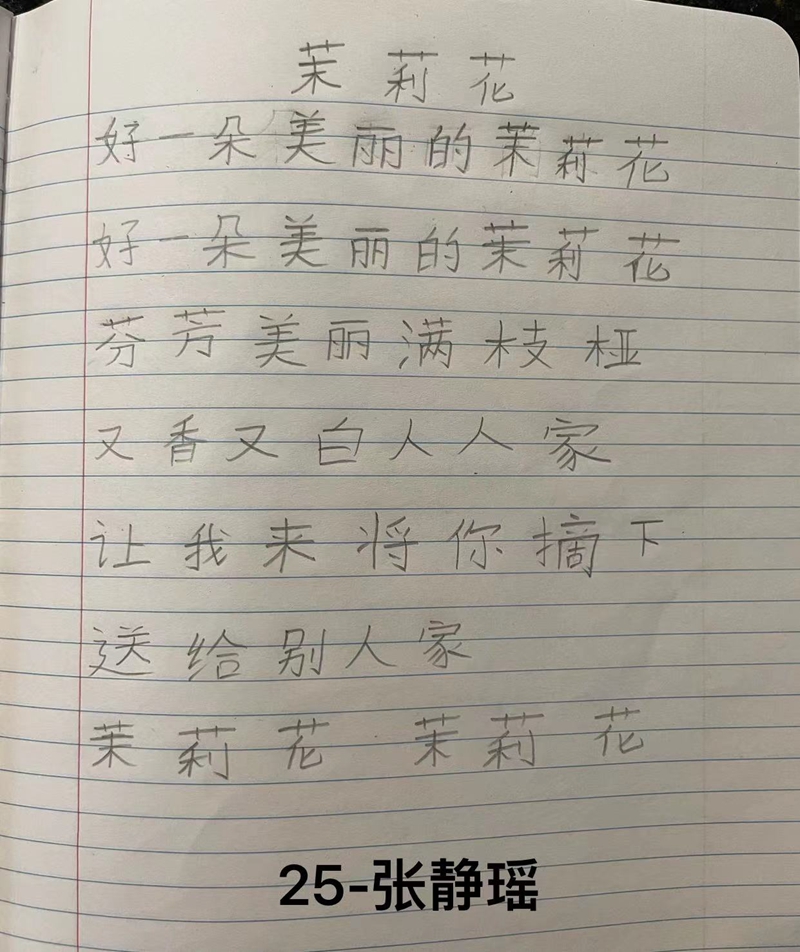 茉莉花
好一朵美丽的茉莉花
好一朵美丽的茉莉花
芬芳美丽满枝桠
又香又白人人家
让我来将你摘下
送给别人家
茉莉花 茉莉花
25-张静瑶